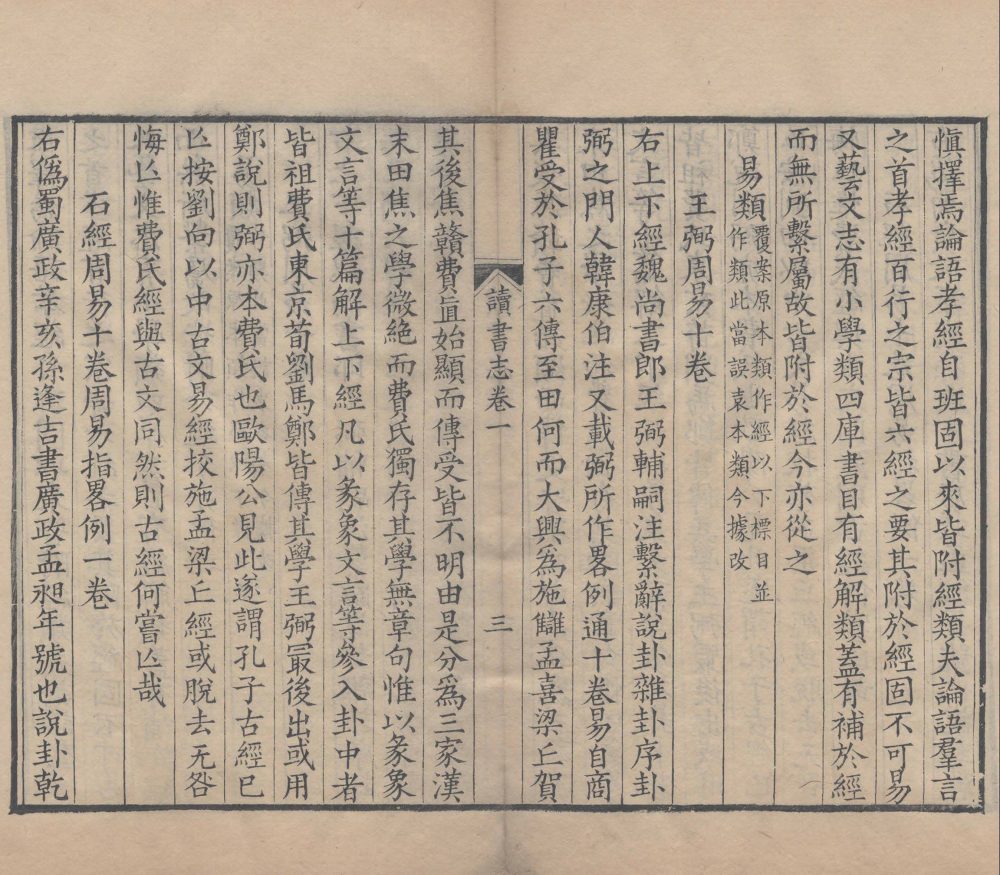 愼擇焉論語孝經自班固以來皆附經類夫論語羣言
之首孝經百行之宗皆六經之要其附於經固不可易
又藝文志有小學類四庫書目有經解類蓋有補於經
而無所繫屬故皆附於經今亦從之
易類覆案原本類作經以下標目並
作類此當誤袁本類今據改
王弼周易十卷
右上下經魏尚書郎王弼輔嗣注繫辭說卦雜卦序卦
弼之門人韓康伯注又載弼所作畧例通十卷易自商
瞿受於孔子六傳至田何而大興爲施讎孟喜梁丘賀
讀書志卷一
三
其後焦贛費直始顯而傳受皆不明由是分爲三家漢
末田焦之學微絶而費氏獨存其學無章句惟以彖象
文言等十篇解上下經凡以彖象文言等參入卦中者
皆祖費氏東京荀劉馬鄭皆傳其學王弼冣後出或用
鄭說則弼亦本費氏也歐陽公見此遂謂孔子古經巳
亾按劉向以中古文易經挍施孟梁丘經或脫去无咎
悔亾惟費氏經與古文同然則古經何嘗亾哉
石經周易十卷周易指畧例一卷
右僞蜀廣政辛亥孫逢吉書廣政孟昶年號也說卦乾